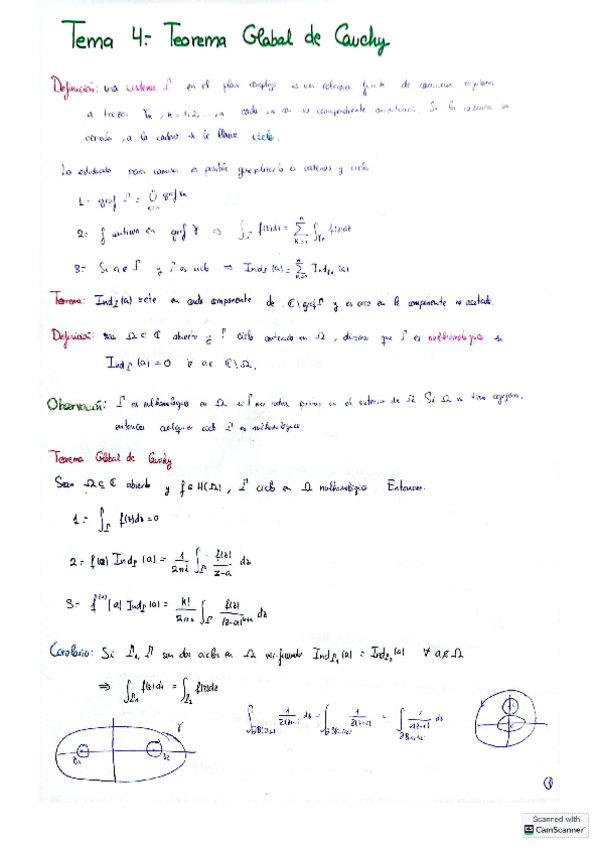 Tema 4:- Teorema Glabal de Cauchy
Definición: una sistema Γ en el plan complejo es un colección finita de caminos regulares
a trozos γk, k=1,2,...,n
cerrado, a la cadena se le llama ciclo.
Lo estudiado para caminos es posible generalizarlo a cadenas y ciclos
1- graf Γ = ⋃ graf γk
2- f continua en graf γ ⇒ ∫Γ f(z)dz = Σ ∫γk f(z)dz
3- Si a∉Γ y Γ es ciclo ⇒ IndΓ(a) = Σ Indγk(a)
Teorema: IndΓ(a)=cte en cada componente de ℂ\graf Γ y es cero en la componente no acotada.
Definición: sea Ω⊂ℂ abierto y Γ ciclo contenido en Ω, diremos que Γ es nulhomólogo si
IndΓ(a)=0 ∀ a∈ ℂ\Ω.
Observación: Γ es nulhomólogo en Ω si Γ no rodea puntos en el exterior de Ω. Si Ω no tiene agujeros,
entonces cualquier ciclo Γ es nulhomólogo
Teorema Global de Cauchy
Sean Ω⊆ℂ abierto y f∈H(Ω), Γ ciclo en Ω nulhomólogo Entonces:
1- ∫Γ f(z)dz=0
2- f(a) IndΓ(a) = 1/2πi ∫Γ f(z)/z-a dz
3- f^(k)(a) IndΓ(a) = k!/2πi ∫Γ f(z)/(z-a)^k+1 dz
Corolario: Si Γ1, Γ2 son dos ciclos en Ω verificando IndΓ1(a) = IndΓ2(a) ∀ a∉Ω
⇒ ∫Γ1 f(z)dz = ∫Γ2 f(z)dz
γ
①
Scanned with
CS CamScanner